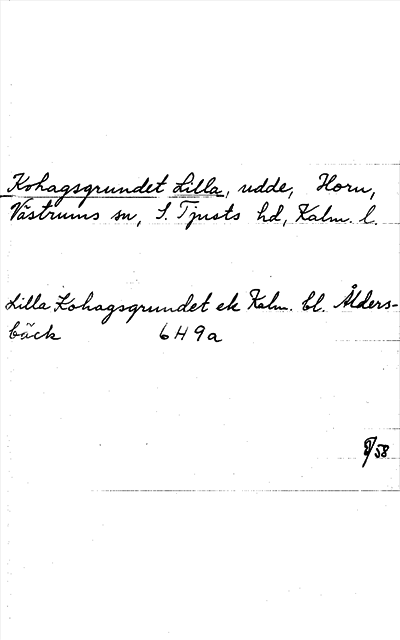 Kohagsgrundet Lilla, udde, Horn,
Västrums sn, S. Tjusts hd, Kalm. l.
Lilla Kohagsgrundet ek Kalm. bl. Ålders-
bäck 6H9a
/58